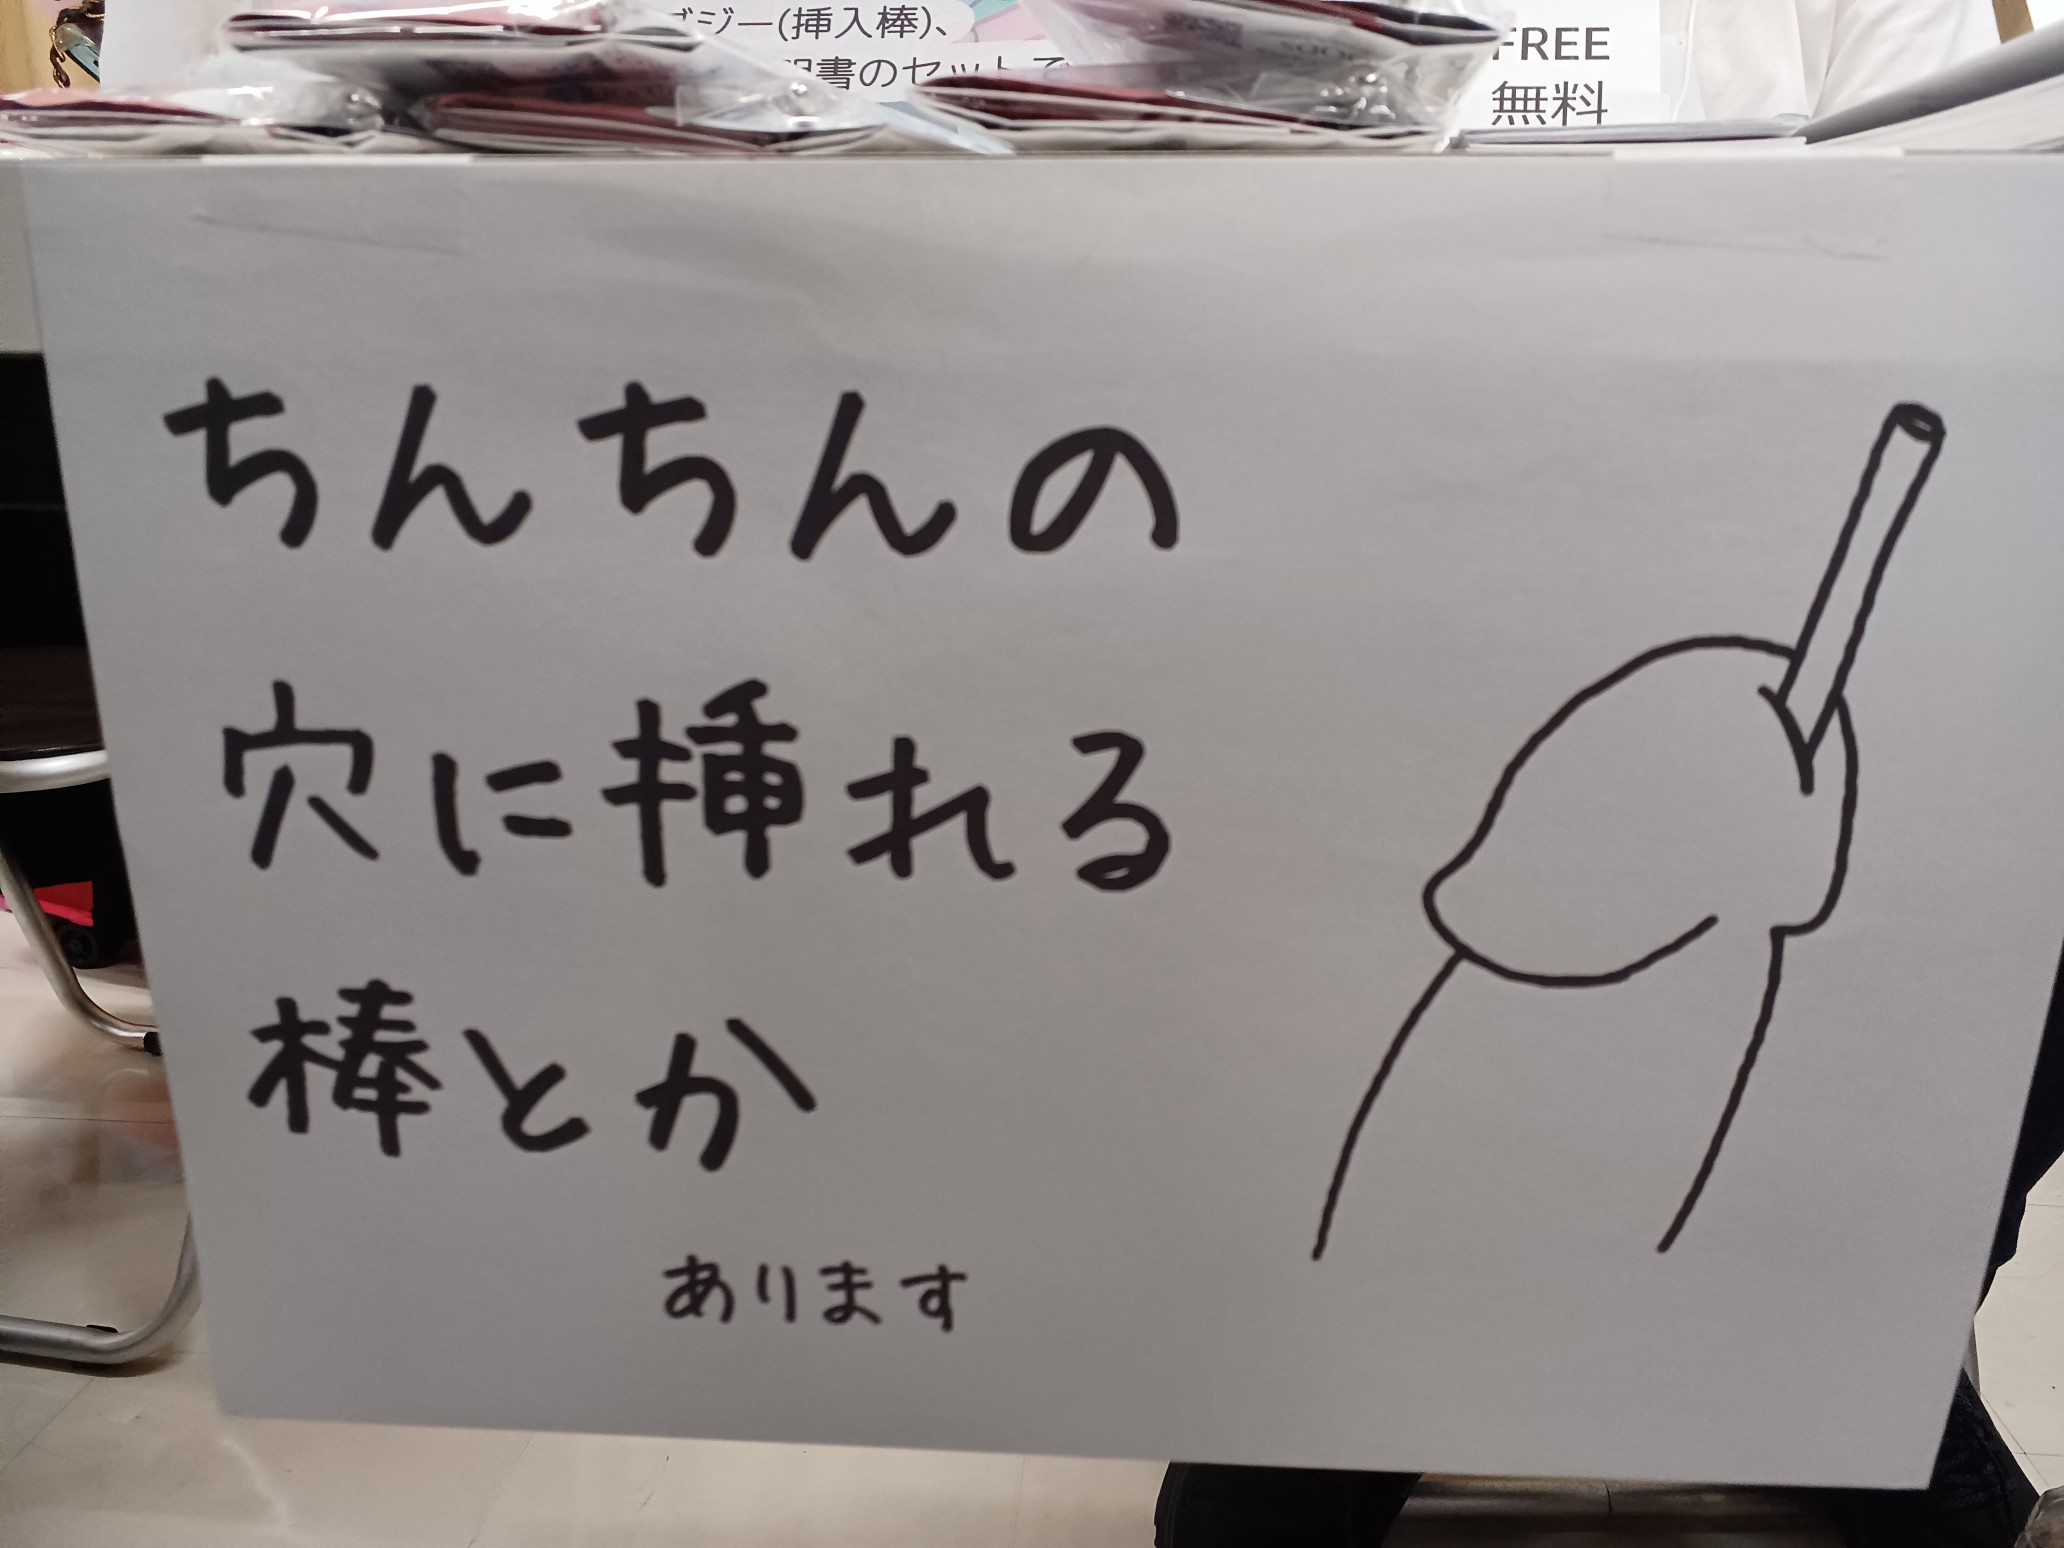 ブジー(挿入棒)、
明書のセットで
FREE
無料
ちんちんの
穴に挿れる
棒とか
あります